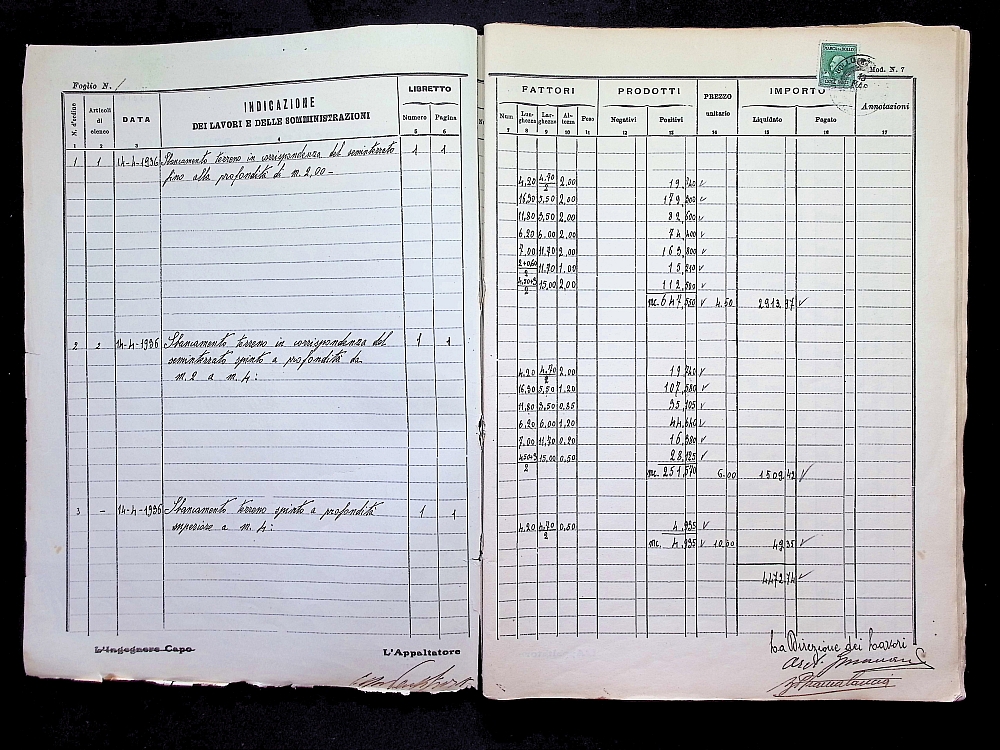 Foglio N. 1
N. d'ordine Articoli di elenco DATA INDICAZIONE DEI LAVORI E DELLE SOMMINISTRAZIONI LIBRETTO Numero Pagina
1 2 3 4 5 6
1 1 14-4-1936 Sbancamento terreno in corrispondenza del seminterrato 1 1
fino alla profondità di m. 2,00 -
2 2 14-4-1936 Sbancamento terreno in corrispondenza del 1 1
seminterrato spinto a profondità da
m. 2 a m. 4:
3 - 14-4-1936 Sbancamento terreno spinto a profondità 1 1
superiore a m. 4:
L'Ingegnere Capo
L'Appaltatore
MARCA DA BOLLO
Mod. N. 7
FATTORI PRODOTTI PREZZO unitario IMPORTO Annotazioni
Num Lunghezza Larghezza Altezza Peso Negativi Positivi Liquidato Pagato
7 8 9 10 11 12 13 14 15 16 17
4.20 4.70/2 2,00 19,740
16.30 5,50 2,00 179,300
11,80 3,50 2,00 82,600
6.20 6.00 2,00 74,400
7.00 11.70 2,00 163,800
2+0.60/2 11.70 1.00 15,210
4.50+3/2 15,00 2,00 112,500
mc. 647,550 4.50 2913,97
4.20 4.70/2 2,00 19,740
16,30 5,50 1.20 107,580
11.80 3.50 0.85 35,105
6.20 6.00 1.20 44,640
7.00 11.70 0.20 16,380
4.50+3/2 15,00 0,50 28,125
mc. 251,570 6.00 1509,42
4.20 4.70/2 0,50 4,935
mc. 4,935 10.00 49,35
4472,74
La Direzione dei Lavori